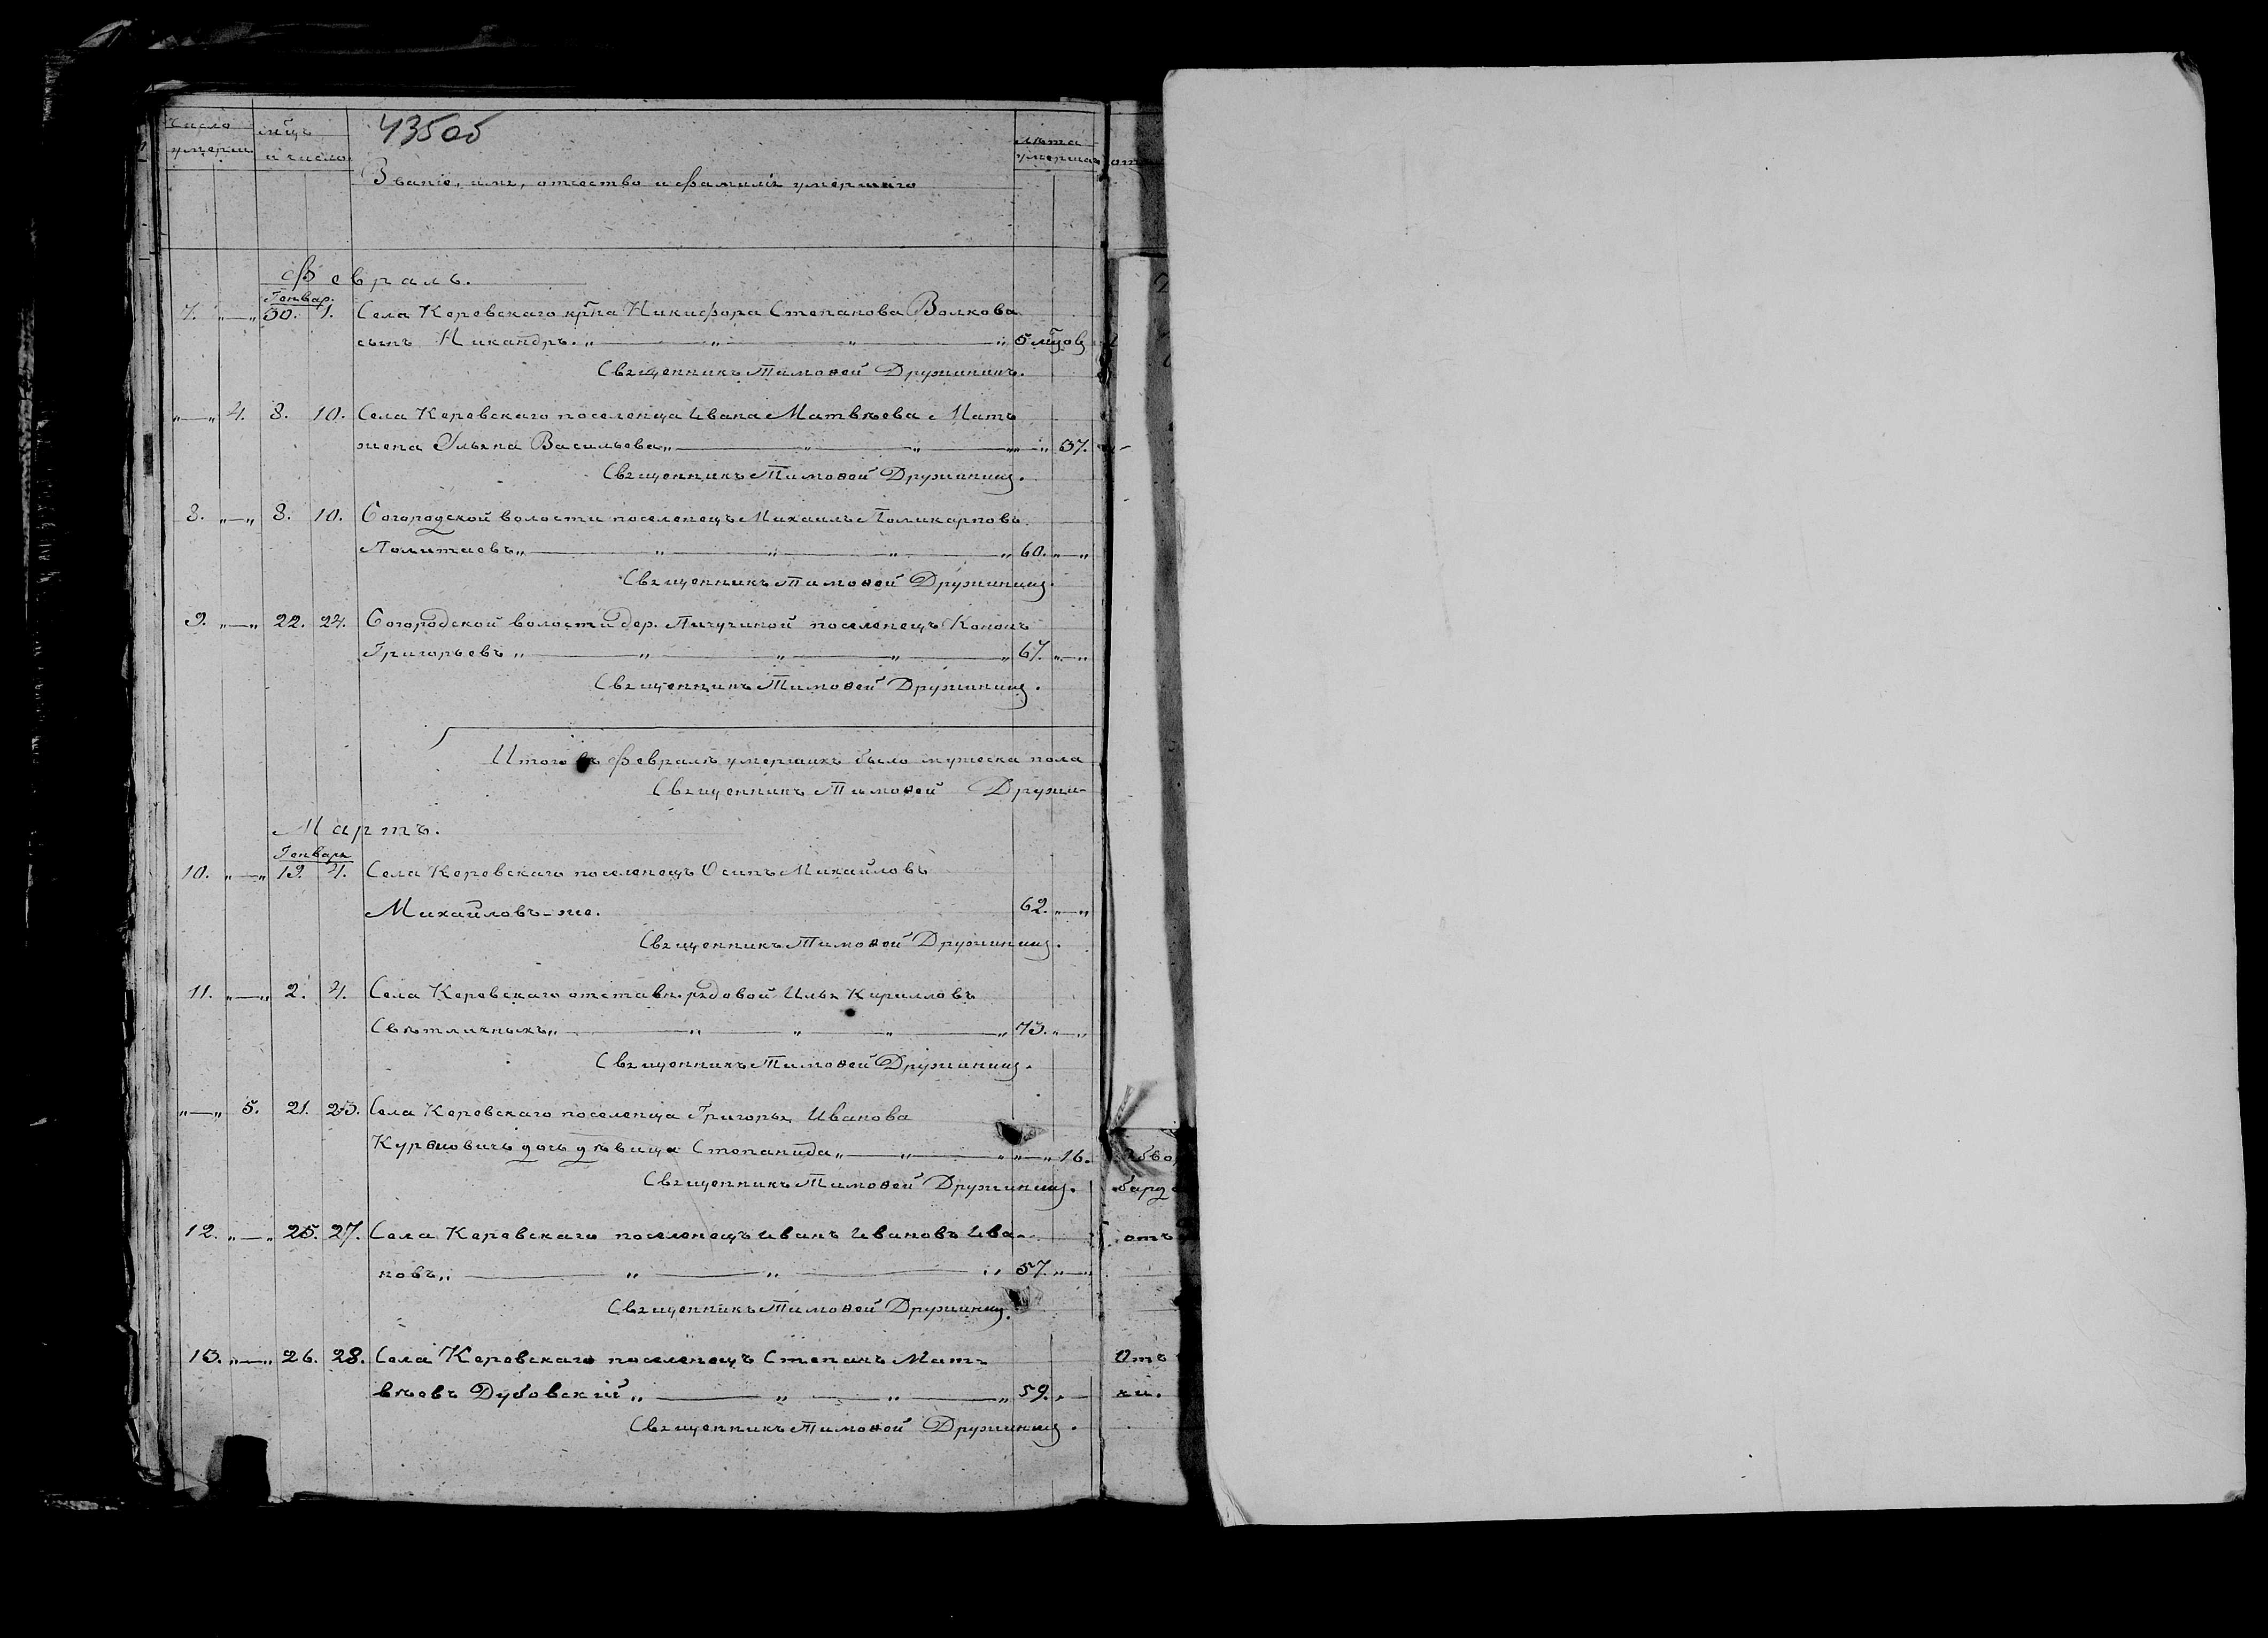 435об
Число умерш.
мѣцъ и число
Званіе, имя, отчество и фамилія умершаго
лѣта умерша
Февраль.
Генвар.
7. „—„ 30. 1. Села Керевскаго крна Никифора Степанова Волкова
сынъ Никандръ. „ — „ — „ — „ 5 мцов
Священникъ Тимоѳей Дружининъ.
„—„ 4. 8. 10. Села Керевскаго поселенца Ивана Матвѣева Мать
жена Ульяна Васильева „ — „ — „ — „—„ 37.
Священникъ Тимоѳей Дружининъ.
8. „—„ 8. 10. Богородской волости поселенецъ Михаилъ Поликарповъ
Политаевъ „ — „ — „ — „ — „ 60. „—„
Священникъ Тимоѳей Дружининъ.
9. „—„ 22. 24. Богородской волости дер. Пичугиной поселенецъ Кононъ
Григорьевъ „ — „ — „ — „ — „ 67. „—„
Священникъ Тимоѳей Дружининъ.
Итого въ февралѣ умершихъ было мужеска пола
Священникъ Тимоѳей Дружи-
Мартъ.
Генваря
10. „—„ 19. 4. Села Керевскаго поселенецъ Осипъ Михайловъ
Михайловъ-же. 62. „—„
Священникъ Тимоѳей Дружининъ.
11. „—„ 2. 4. Села Керевскаго отставн. рядовой Илья Кирилловъ
Свѣтличныхъ „ — „ — „ — „ — „ 73. „—„
Священникъ Тимоѳей Дружининъ.
„—„ 5. 21. 23. Села Керевскаго поселенца Григорья Иванова
дочь дѣвица Степанида „ — „ — „ „—„ 16.
Священникъ Тимоѳей Дружининъ.
12. „—„ 25. 27. Села Керевскаго поселенецъ Иванъ Ивановъ Ива-
новъ „ — „ — „ — „ 57. „—„
Священникъ Тимоѳей Дружининъ.
13. „—„ 26. 28. Села Керевскаго поселенецъ Степанъ Мат-
вѣевъ Дубовскій „ — „ — „ — „ 59. „—
Священникъ Тимоѳей Дружининъ.
отъ
Отъ
ки.